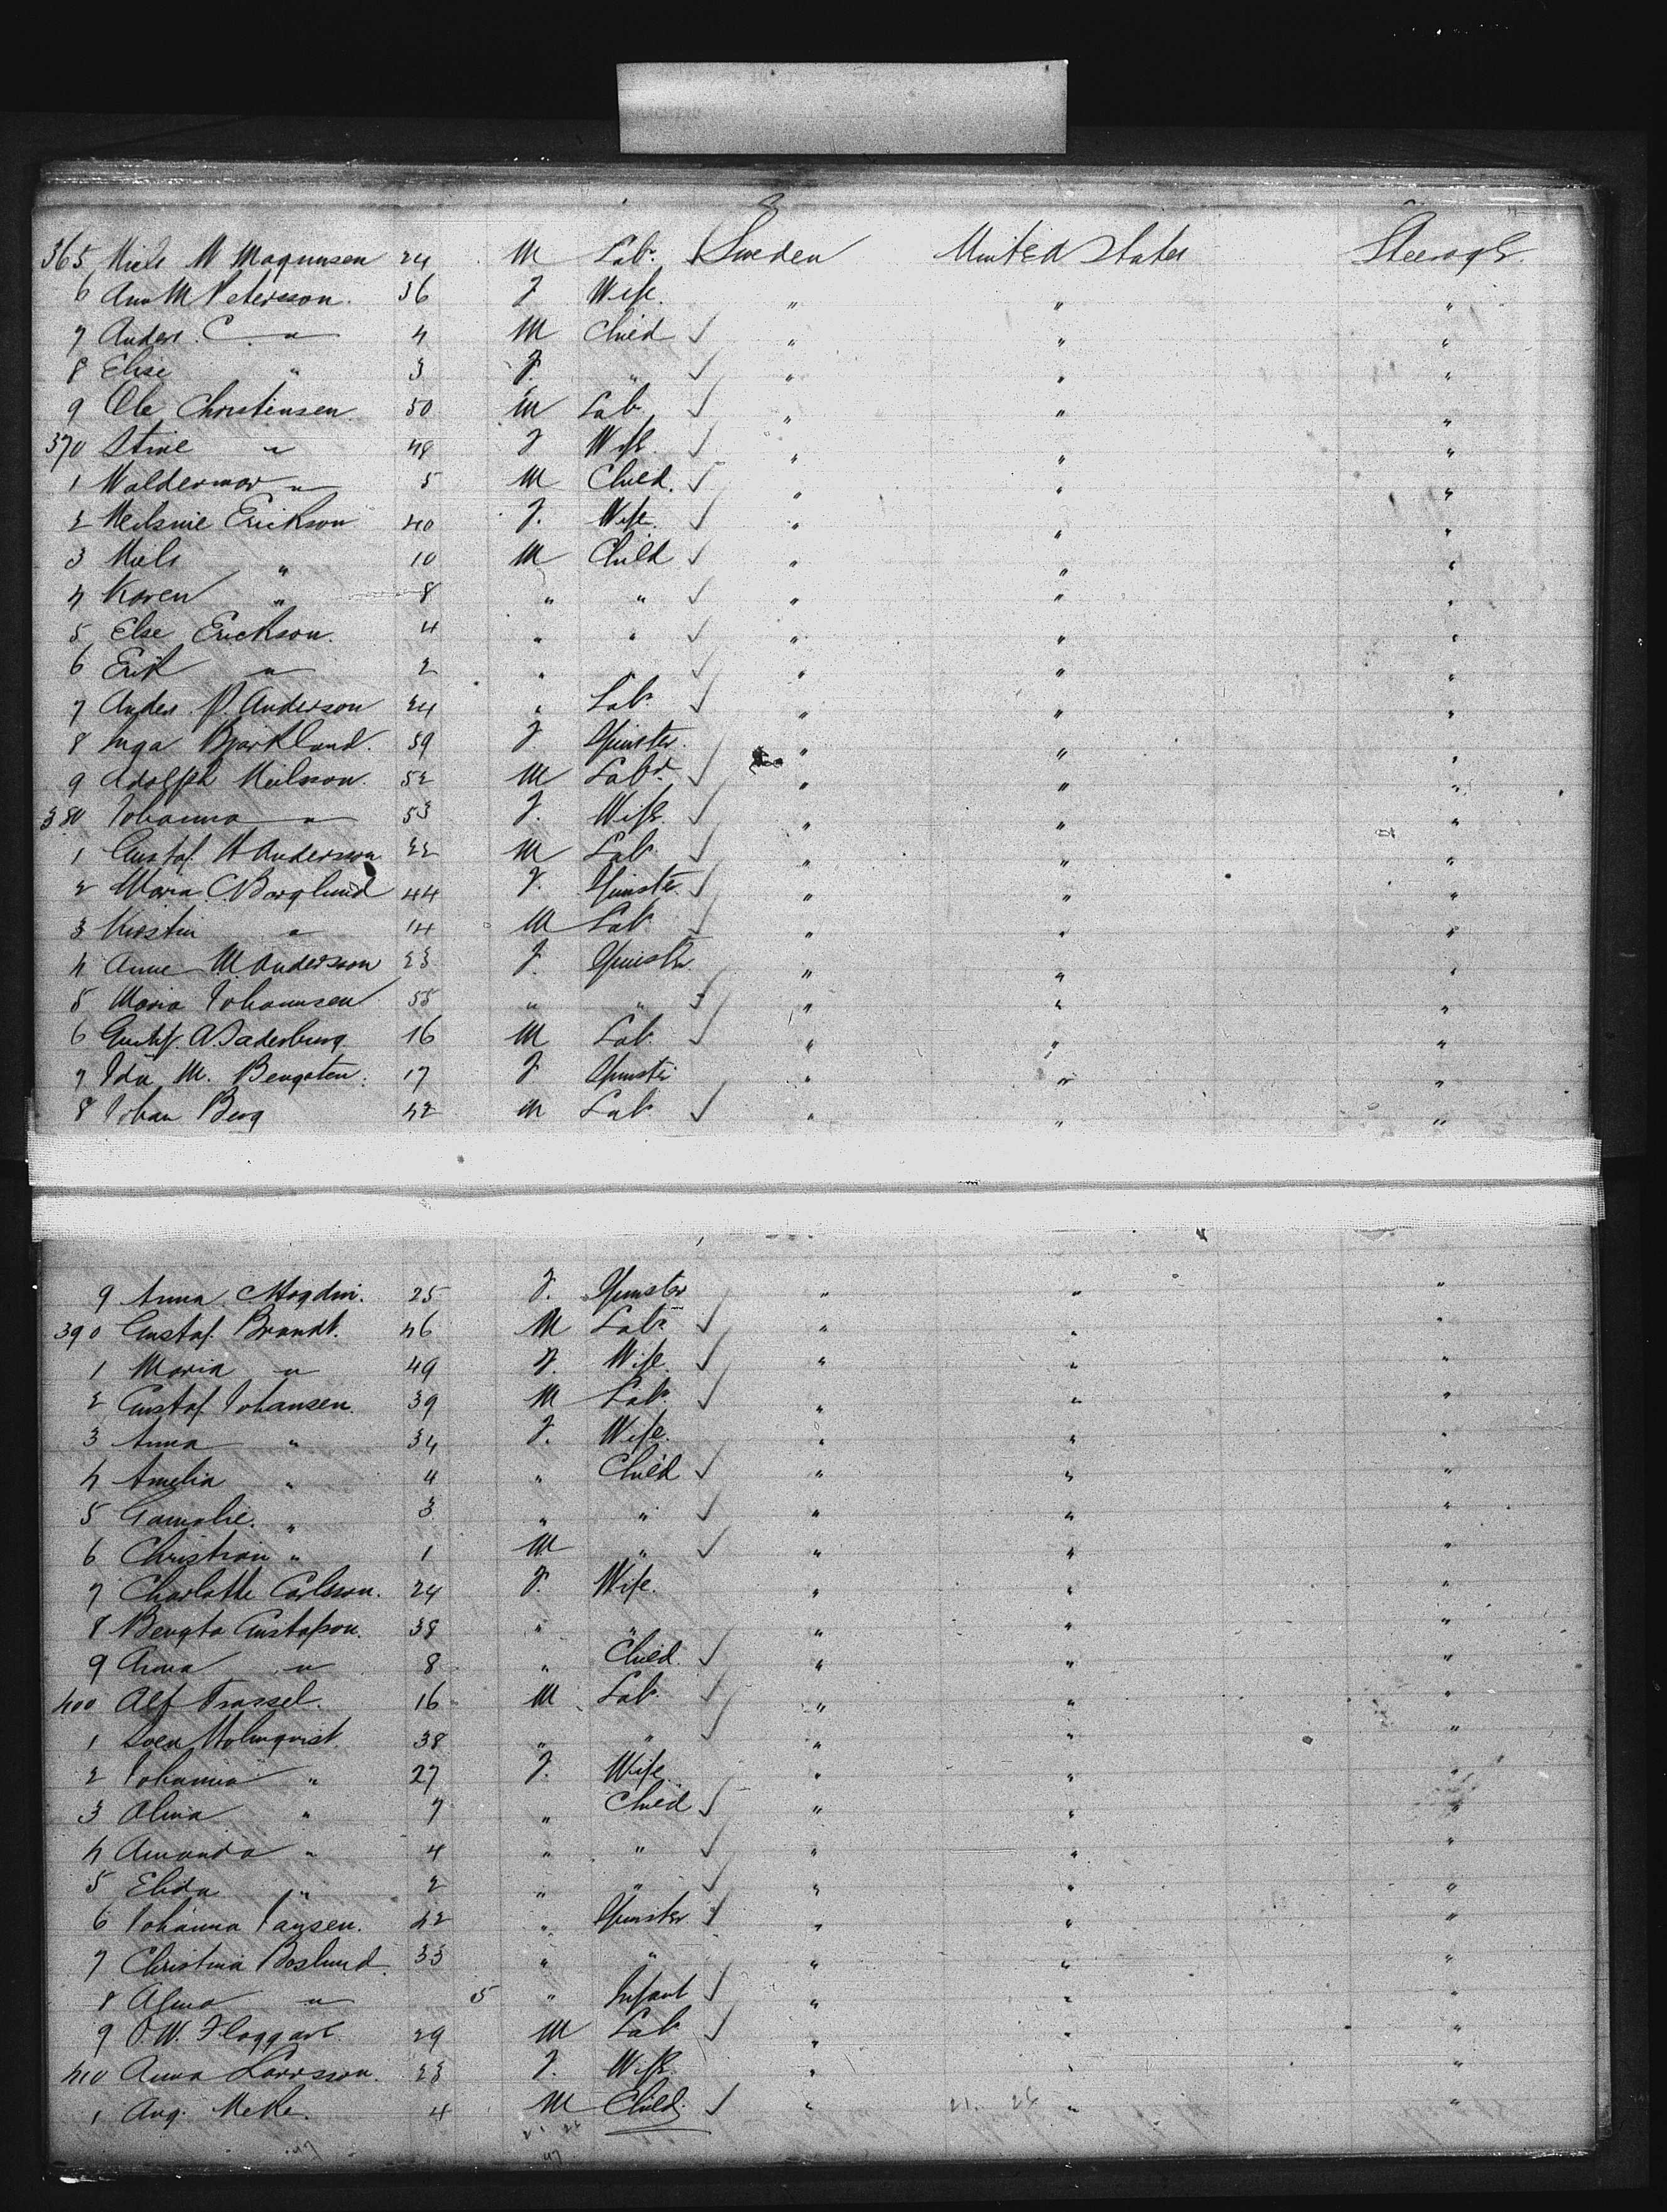 365 Niels N Magnusen 24 M Lab. Sweden United States Steerage
6 Ann M Petersson. 36 F Wife. " " "
7 Anders. C " 4 M Child " " "
8 Elise " 3 F. " " " "
9 Ole Christensen 50 M Lab " " "
370 Stine " 48 F Wife. " " "
1 Waldermar " 5 M Child. " " "
2 Neilsine Erickson 40 F. Wife. " " "
3 Niels " 10 M Child " " "
4 Karen " 8 " " " " "
5 Else Erickson. 4 " " " " "
6 Erik " 2 " " " "
7 Anders P. Anderson 24 " Lab " " "
8 Inga Bjorkland. 59 F. Spinster. " " "
9 Adolph Neilsson. 52 M Labr " " "
380 Johanna " 53 F. Wife. " " "
1 Gustaf. A Anderson 22 M Lab " " "
2 Maria C. Borglund 44 F. Spinster. " " "
3 Kirstin " 14 M Lab " " "
4 Anne M. Anderson 23 F. Spinster " " "
5 Maria Johannsen 55 " " " " "
6 Gustf. A. Saderburg 16 M Lab. " " "
7 Ida M. Bengsten. 17 F Spinster " " "
8 Johan Berg 42 M Lab " " "
9 Anna Mogdin. 25 F. Spinster " " "
390 Gustaf. Brandt. 46 M Labr " " "
1 Maria " 49 F. Wife. " " "
2 Gustaf. Johansen. 39 M Lab. " " "
3 Anna " 34 F. Wife. " " "
4 Amelia " 4 " Child " " "
5 Gamalie. " 3 " " " " "
6 Christian " 1 M " " " "
7 Charlotte Carlsson. 24 F. Wife. " " "
8 Bengta Gustafson. 38 " " " " "
9 Anna " 8 " Child. " " "
400 Alf Trassel. 16 M Lab " " "
1 Sven Holmqvist. 38 " " " " "
2 Johanna " 27 F. Wife. " " "
3 Alma " 7 " Child " " "
4 Amanda " 4 " " " " "
5 Elida " 2 " " " " "
6 Johanna Jansen. 42 " Spinster " " "
7 Christina Boslund 33 " " " " "
8 Alma " 5 " Infant " " "
9 O. W. Floggart. 29 M Lab " " "
410 Anna Larsson. 23 F. Wife. " " "
1 Aug. Meke. 4 M Child. " " "